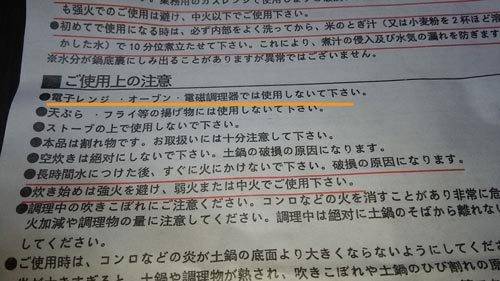 業務用のガスレンジ
も強火でのご使用は避け、中火以下でご使用下さい。
●初めてご使用になる時は、必ず内部をよく洗ってから、米のとぎ汁（又は小麦粉を2杯ほど溶
かした水）で10分位煮立たせて下さい。これにより、煮汁の侵入及び水気の漏れを防ぎます
※水分が鍋底裏にしみ出ることがありますが異常ではございません。
ご使用上の注意
●電子レンジ・オーブン・電磁調理器では使用しないで下さい。
●天ぷら・フライ等の揚げ物には使用しないで下さい。
●ストーブの上で使用しないで下さい。
●本品は割れ物です。お取扱いには十分注意して下さい。
●空炊きは絶対にしないで下さい。土鍋の破損の原因になります。
●長時間水につけた後、すぐに火にかけないで下さい。破損の原因になります。
●炊き始めは強火を避け、弱火または中火でご使用下さい。
●調理中の吹きこぼれにご注意ください。コンロなどの火を消すことがあり非常に危
火加減や調理物の量に注意してください。調理中は絶対に土鍋のそばから離れない
してください。
●ご使用時は、コンロなどの炎が土鍋の底面より大きくならないようにしてください
大きすぎると、土鍋や調理物が熱され、吹きこぼれや土鍋のひび割れの原